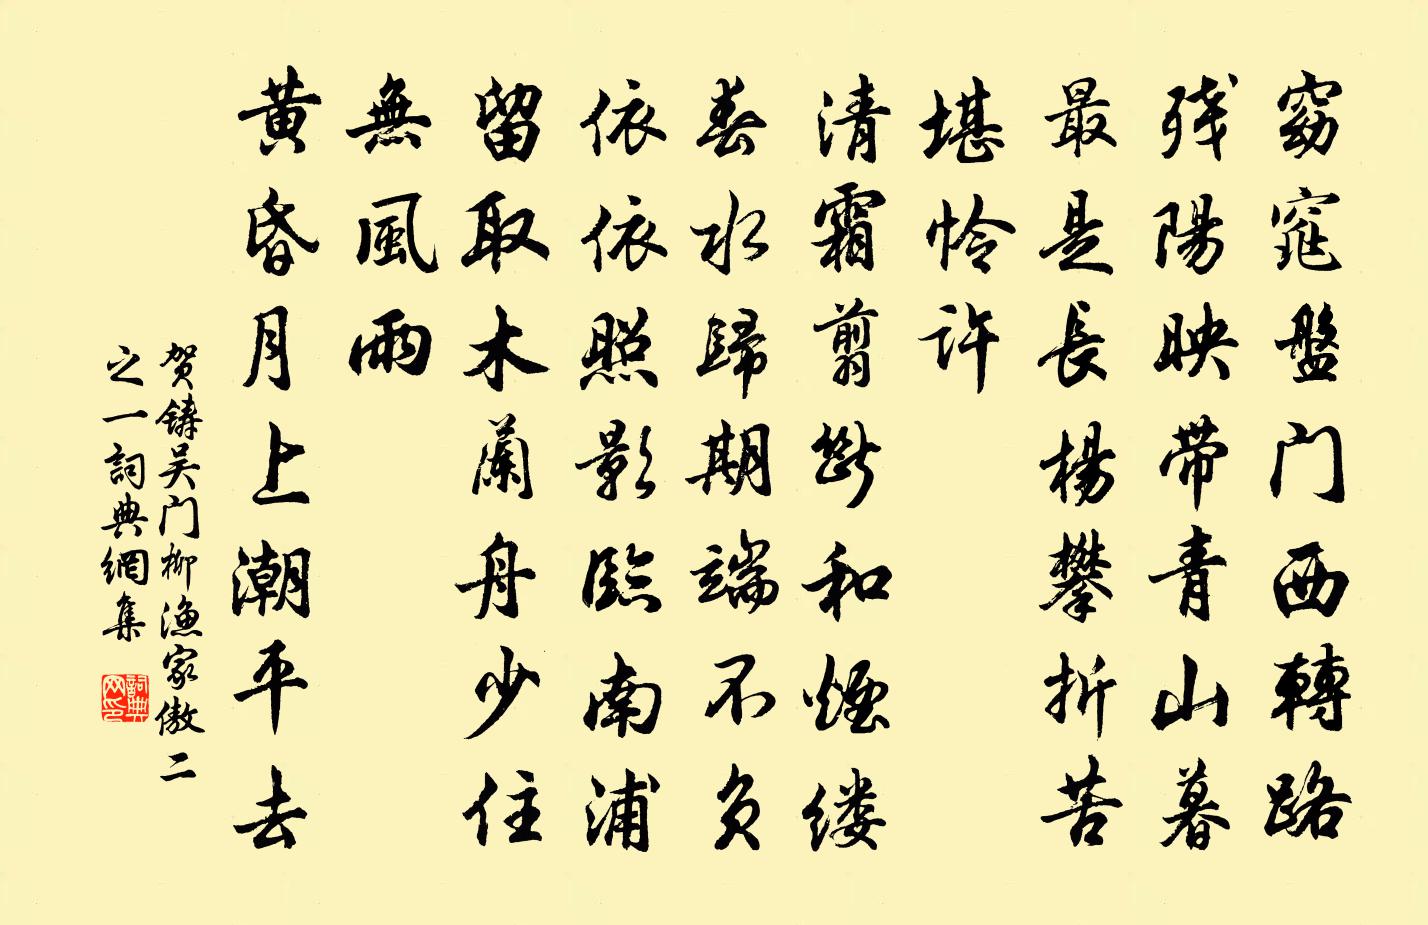 窈窕盤门西轉路
残陽映带青山暮
最是長楊攀折苦
堪怜许
清霜剪斷和煙缕
春水歸期端不负
依依照影臨南浦
留取木蘭舟少住
無風雨
黄昏月上潮平去
贺铸吴门柳渔家傲二
之一詞典網集
詞典
网印